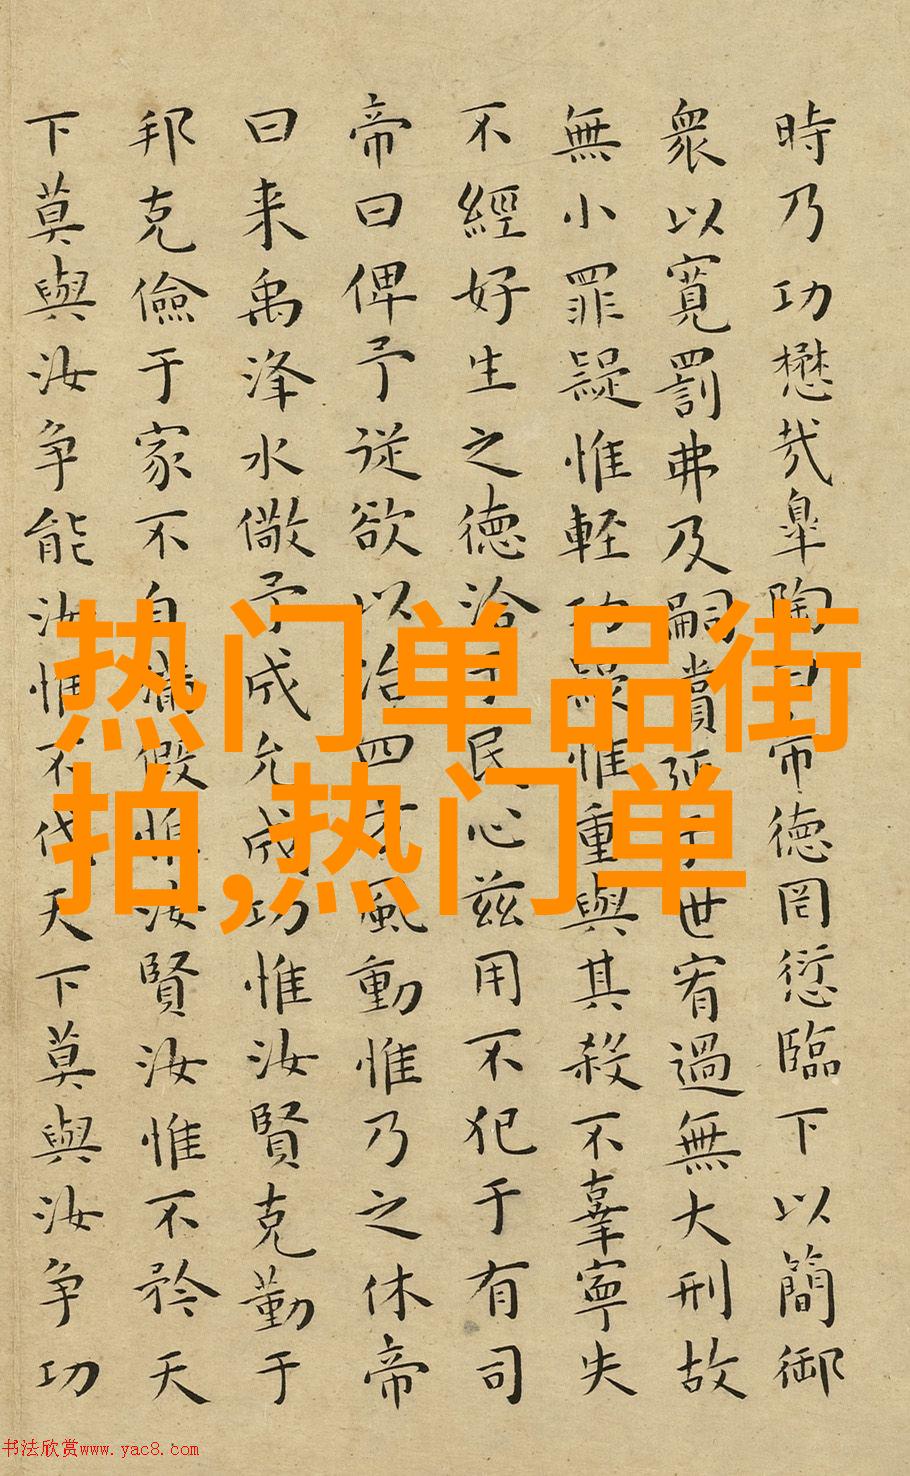 時乃功懋哉皐陶曰帝徳罔愆臨下以簡御
衆以寛罰弗及嗣賞延于世宥過無大刑故
無小罪疑惟軽功疑惟重與其殺不辜寧失
不經好生之徳洽于民心兹用不犯于有司
帝曰俾予従欲以治四方風動惟乃之休帝
曰来禹洚水儆予成允成功惟汝賢克勤于
邦克儉于家不自滿假惟汝賢汝惟不矜天
下莫與汝争能汝惟不伐天下莫與汝争功
热门单品街
拍,热门单
书法欣赏www.yac8.com